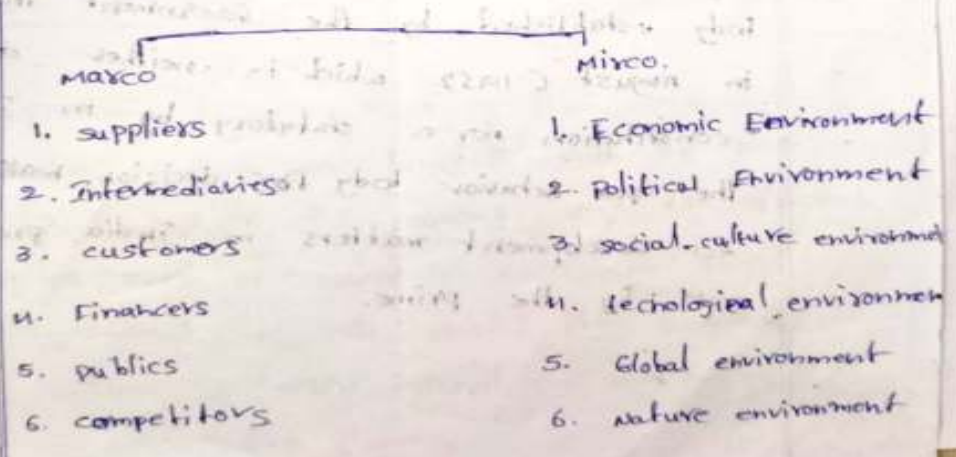 Marco
Mirco.
1. suppliers
2. Intermediaries
3. customers
4. Financers
5. publics
6. competitors
1. Economic Environment
2. political Environment
3. social-culture environme
4. techological environmen
5. Global environment
6. Nature environment